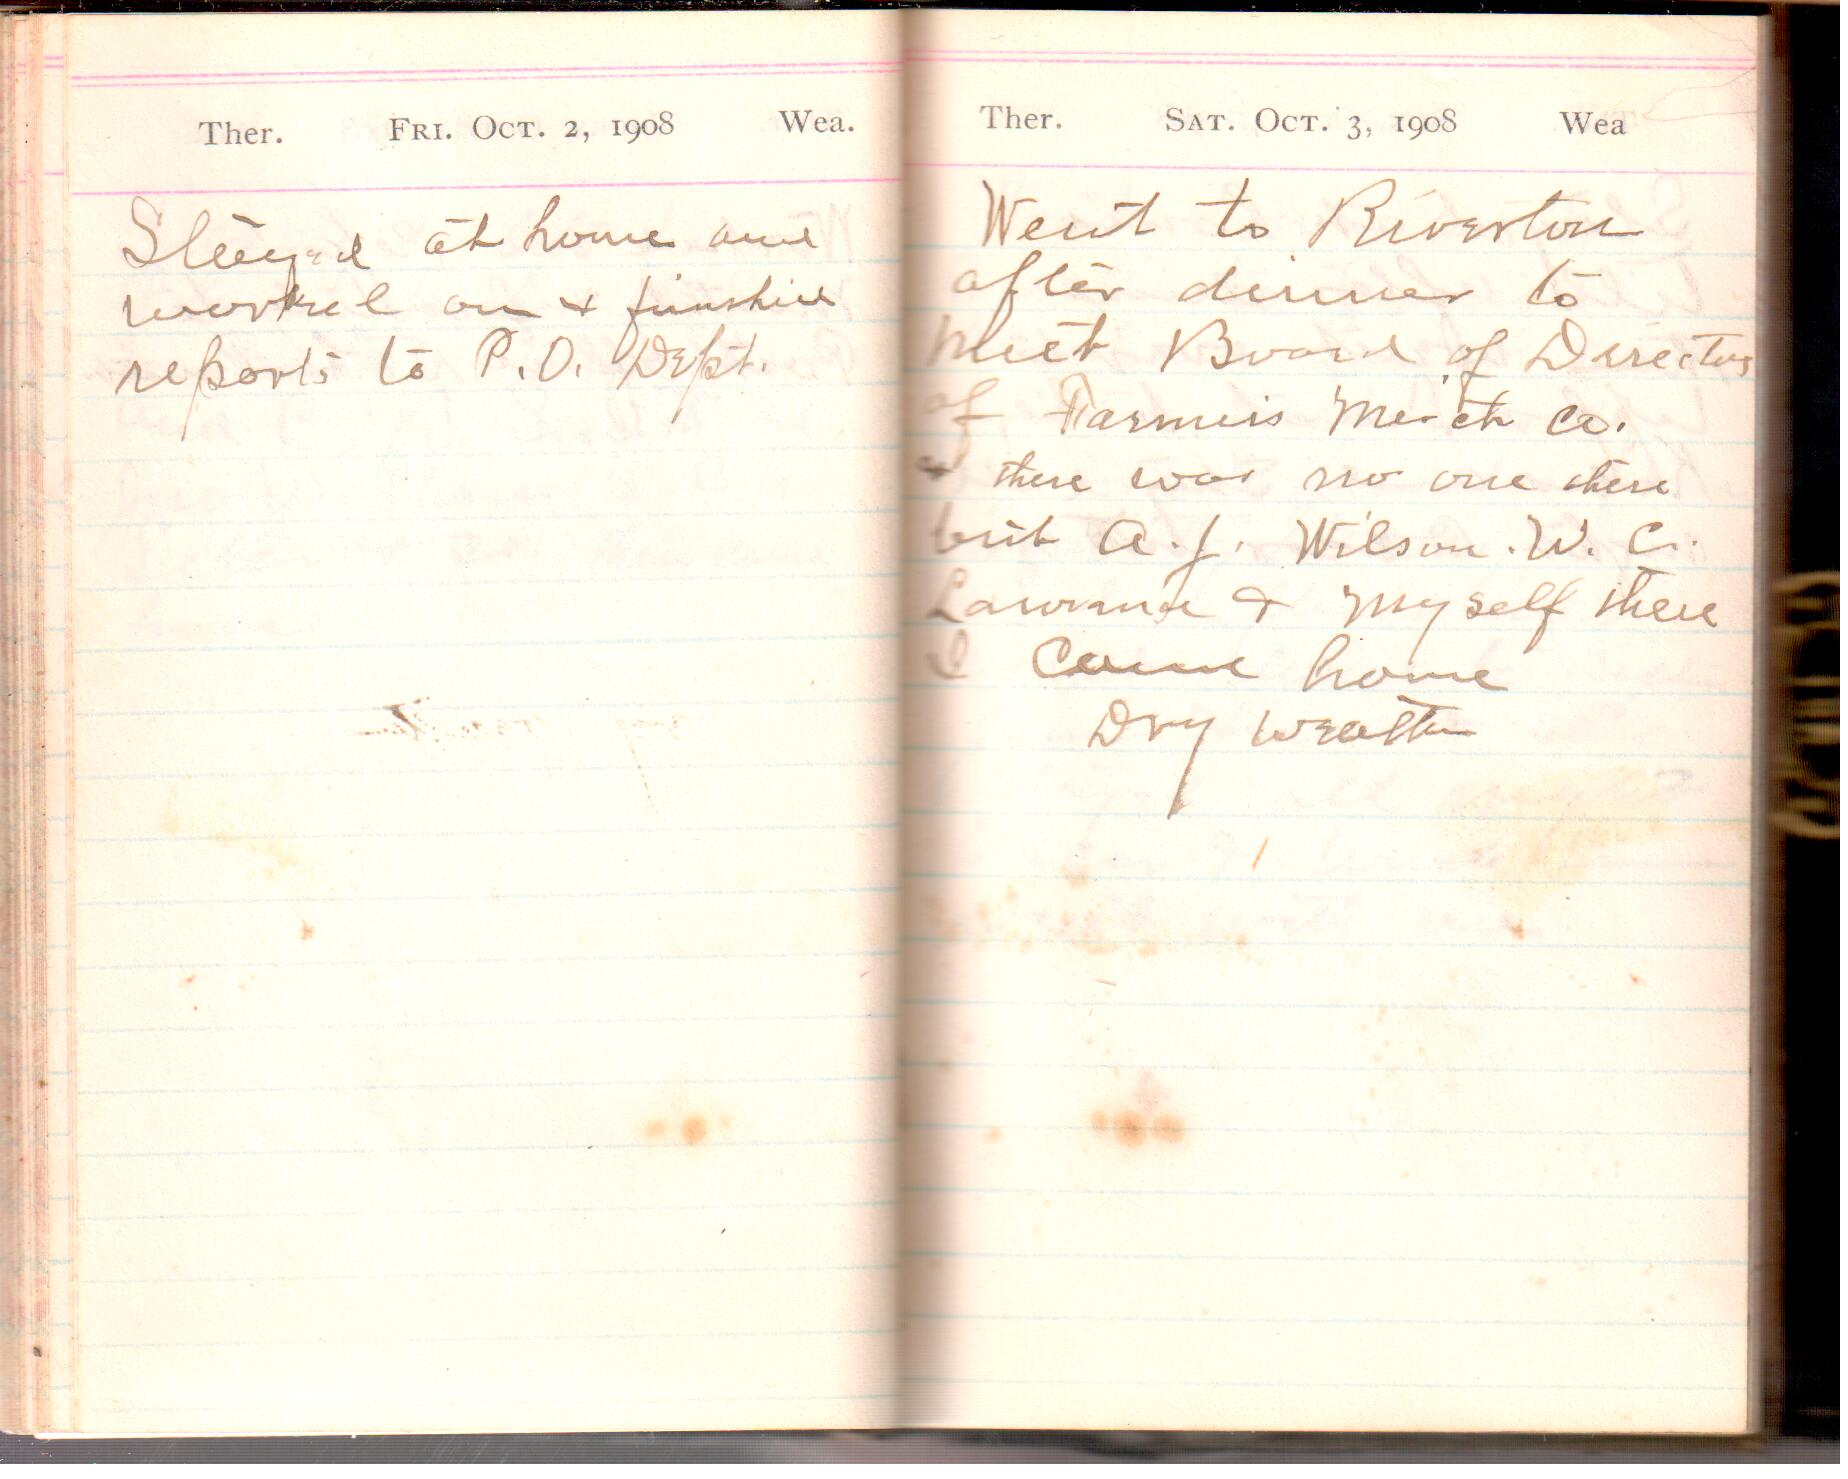 Ther. Fri. Oct. 2, 1908 Wea.
Stayed at home and
worked on & finished
reports to P.O. Dept.
Ther. Sat. Oct. 3, 1908 Wea
Went to Riverton
after dinner to
Meet Board of Directors
of Farmers Merch Co.
there was no one there
but A.J. Wilson. W. C.
Lawrance & Myself there
I Came home
Dry weather